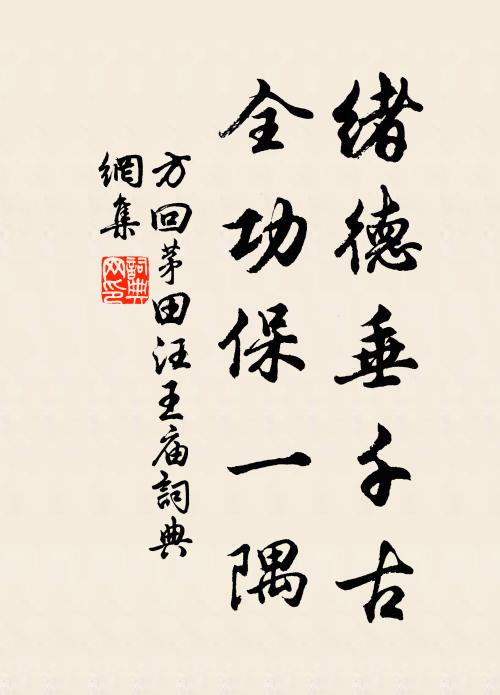 绪德垂千古
全功保一隅
方回茅田汪王庙詞典
網集
詞典
网印